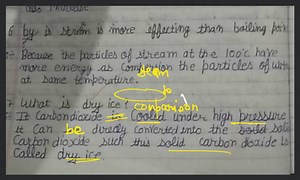 also increase
6 by is stream is more effecting than bailing
Because the particles of stream at the 100°C have
more energy as comparison the particles of
at same temperature.
steam
to
comparison
7 What is dry ice?
It Carbondioxide is Cooled under high pressure
it Can be directly converted into the solid
Carbon dioxide such this solid carbon dioxide is
Called dry ice